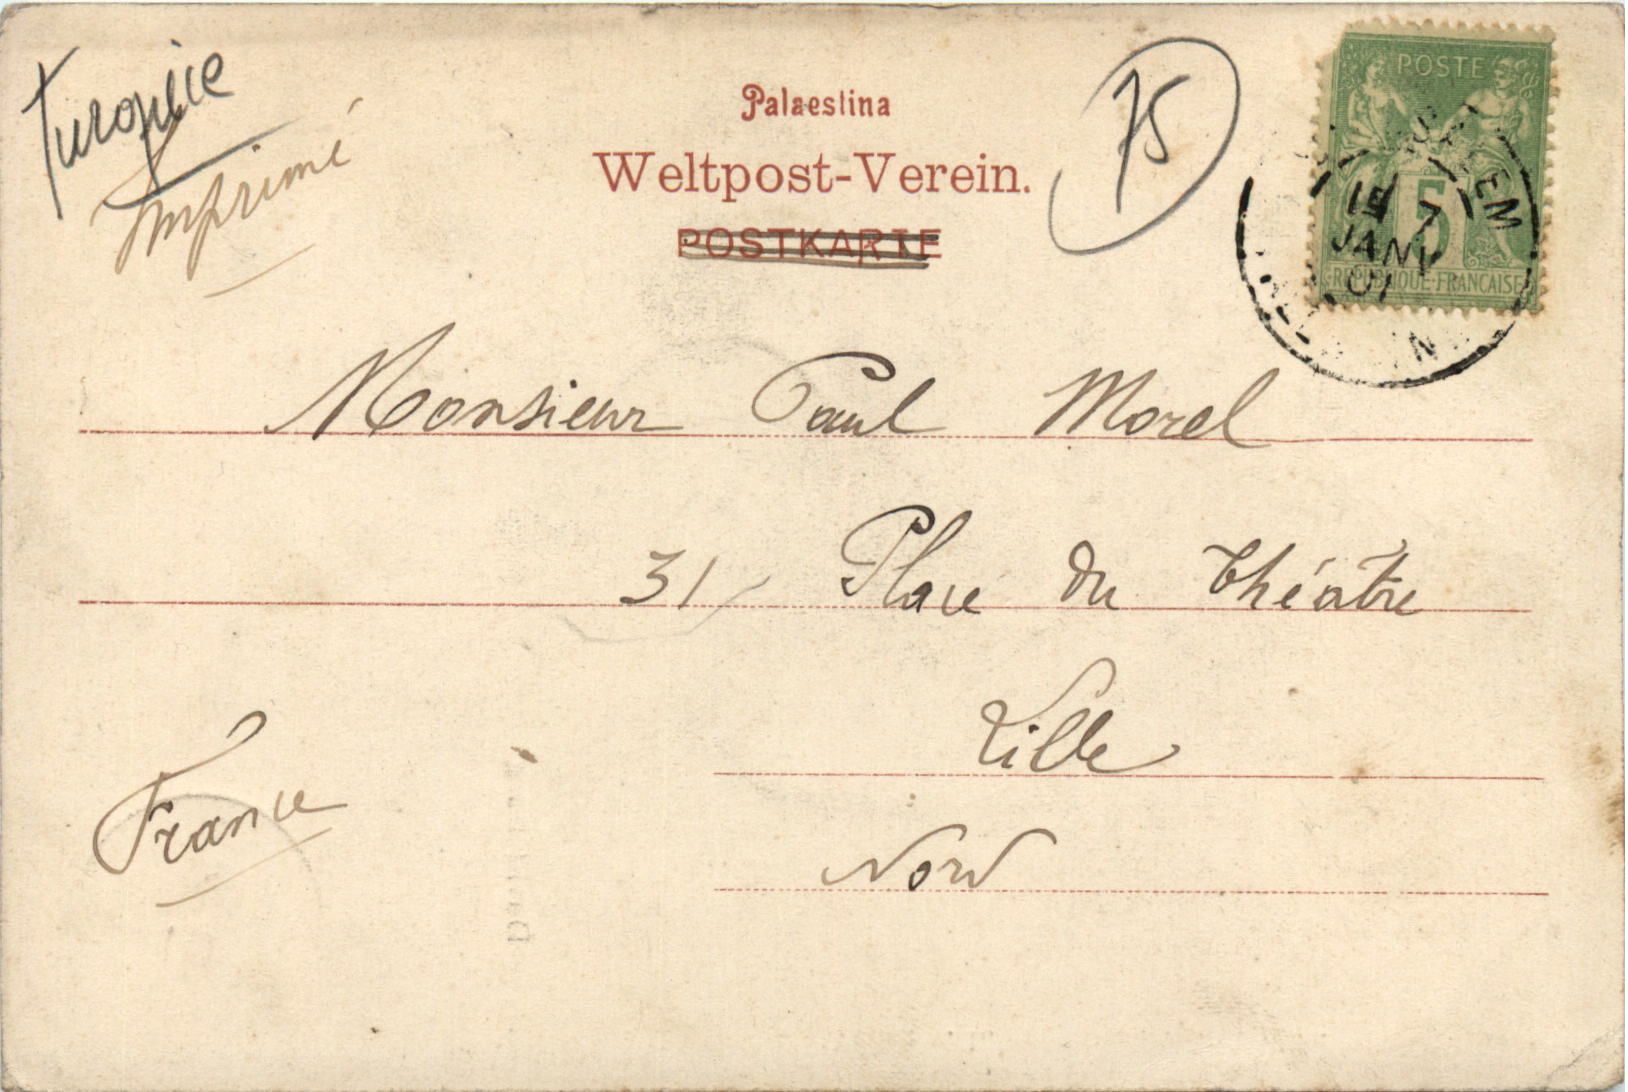 Turquie
Imprimé
Palaestina
Weltpost-Verein.
POSTKARTE
75
POSTE
5
REPUBLIQUE FRANÇAISE
JANV
01
Monsieur Paul Morel
31 Place du théatre
Lille
Nord
France